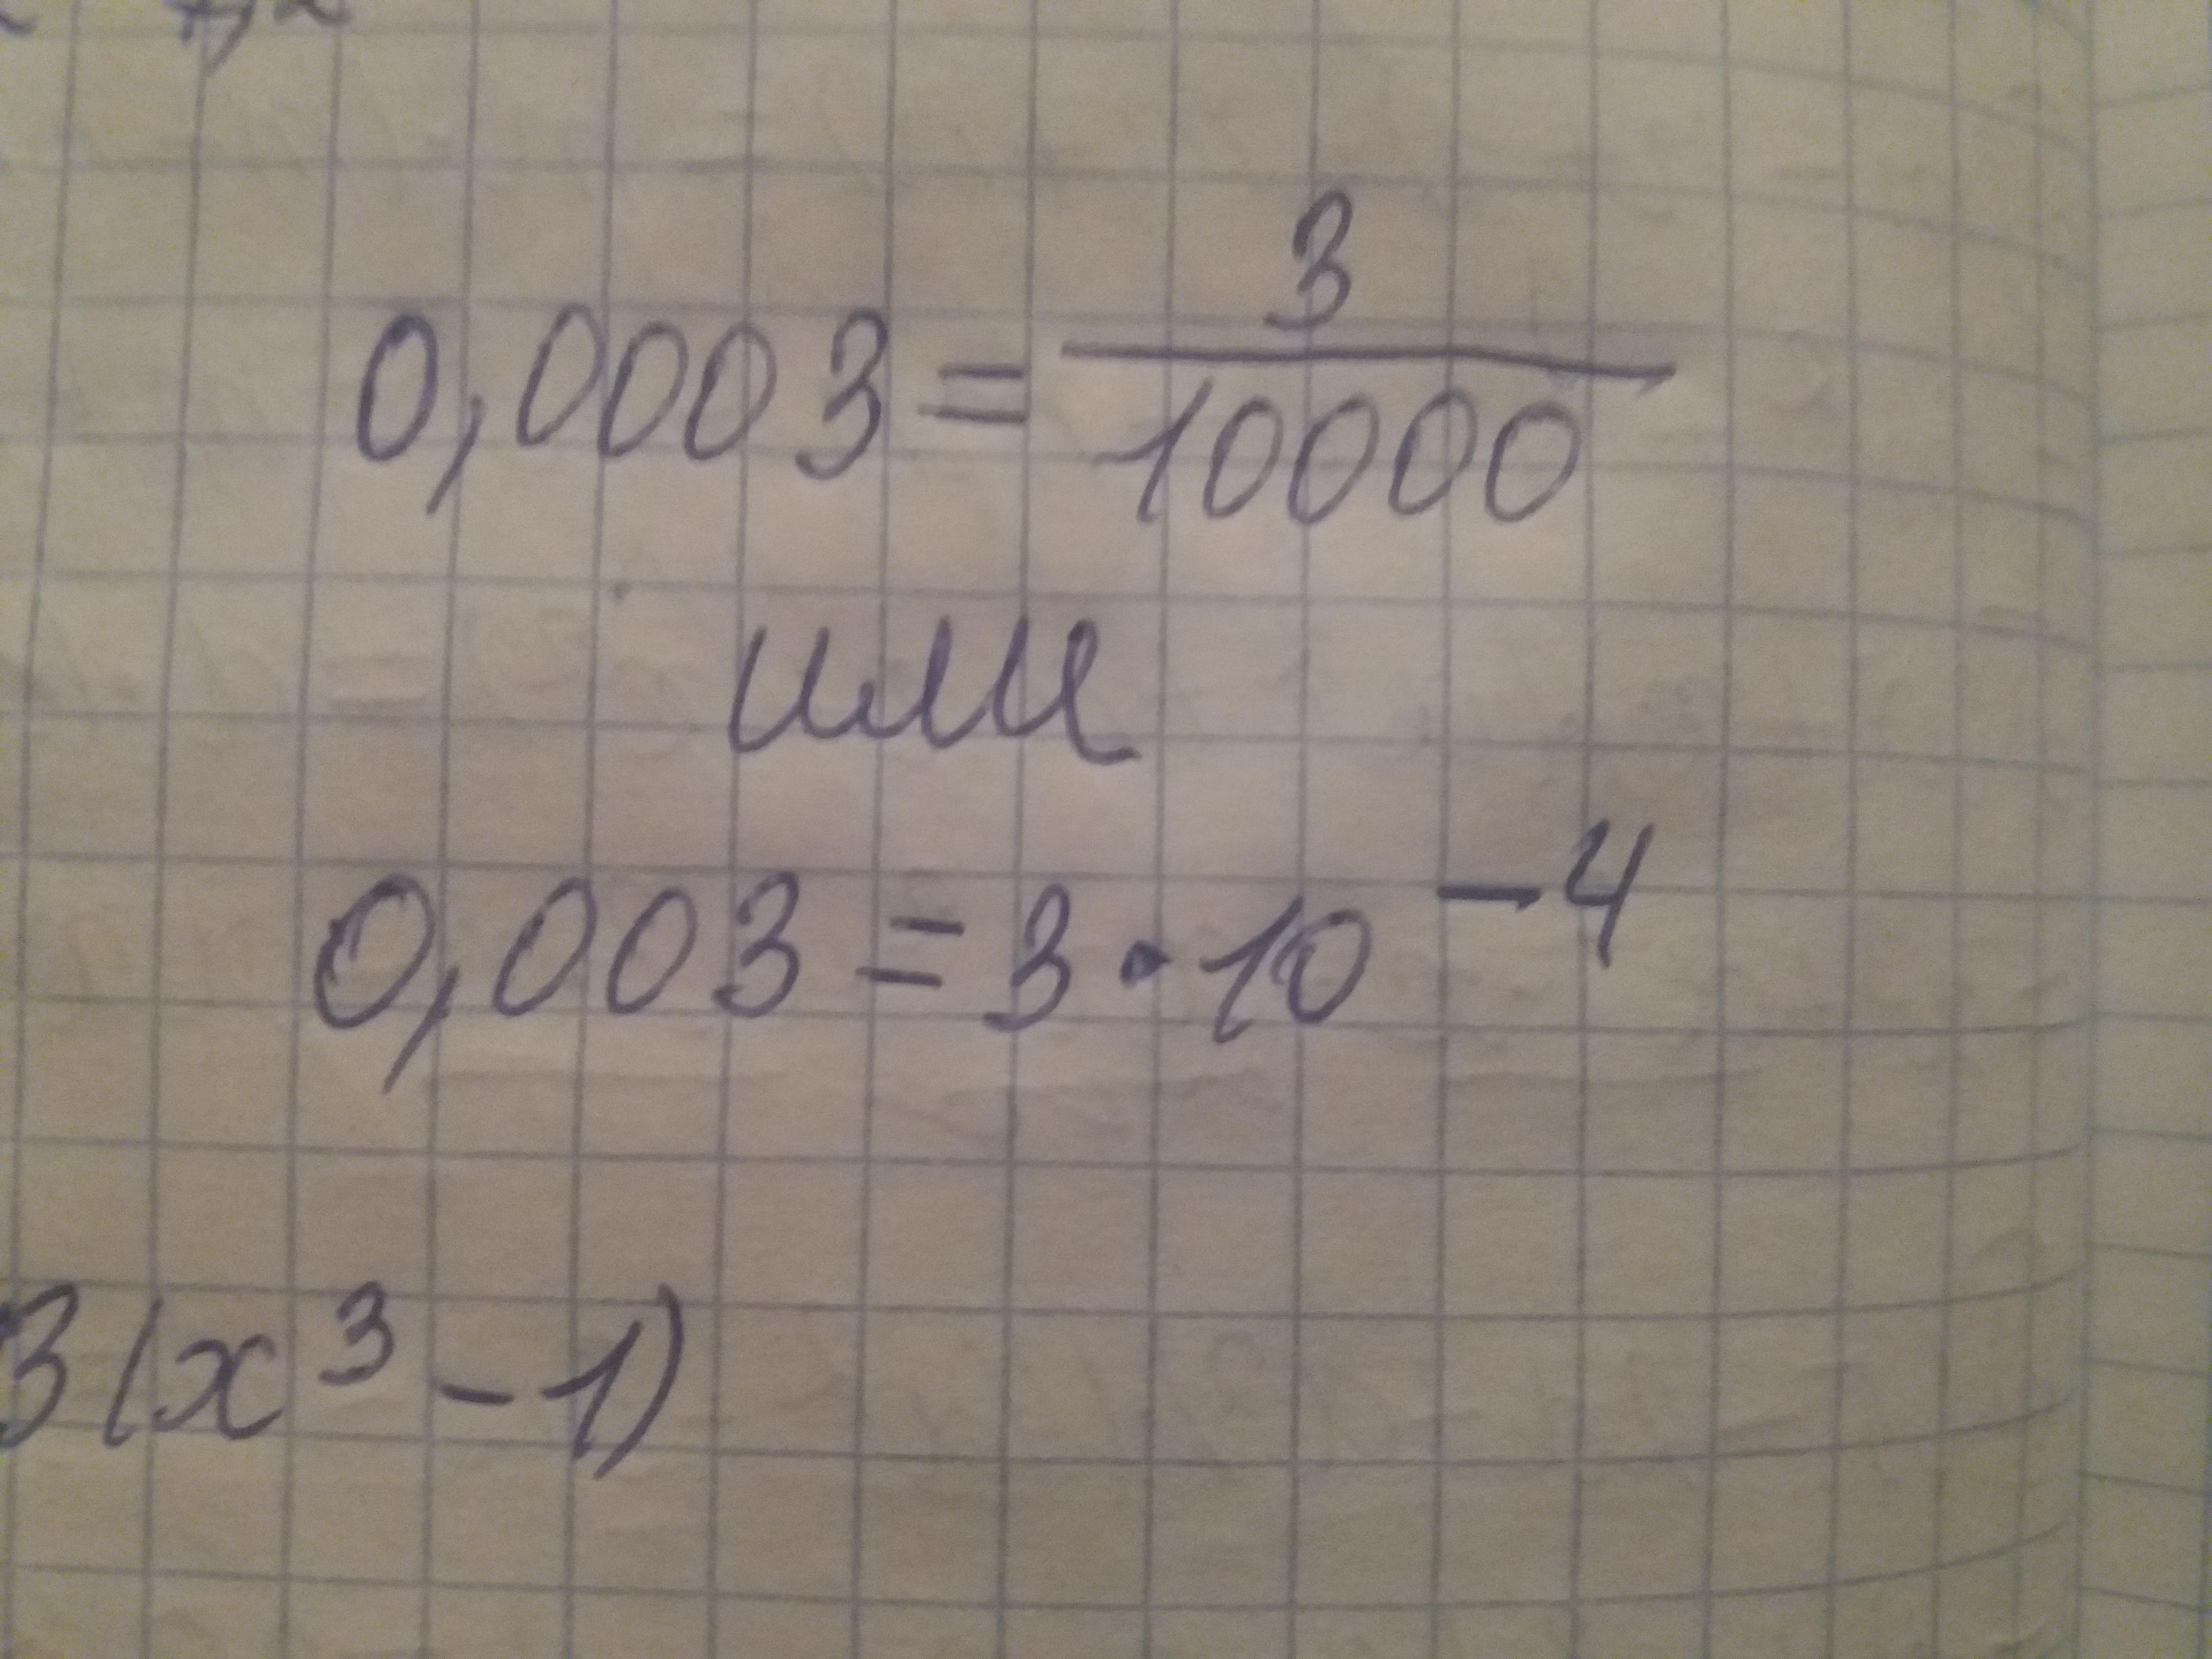 0,0003 = 3/10000
или
0,003 = 3 · 10⁻⁴
3(x³ - 1)